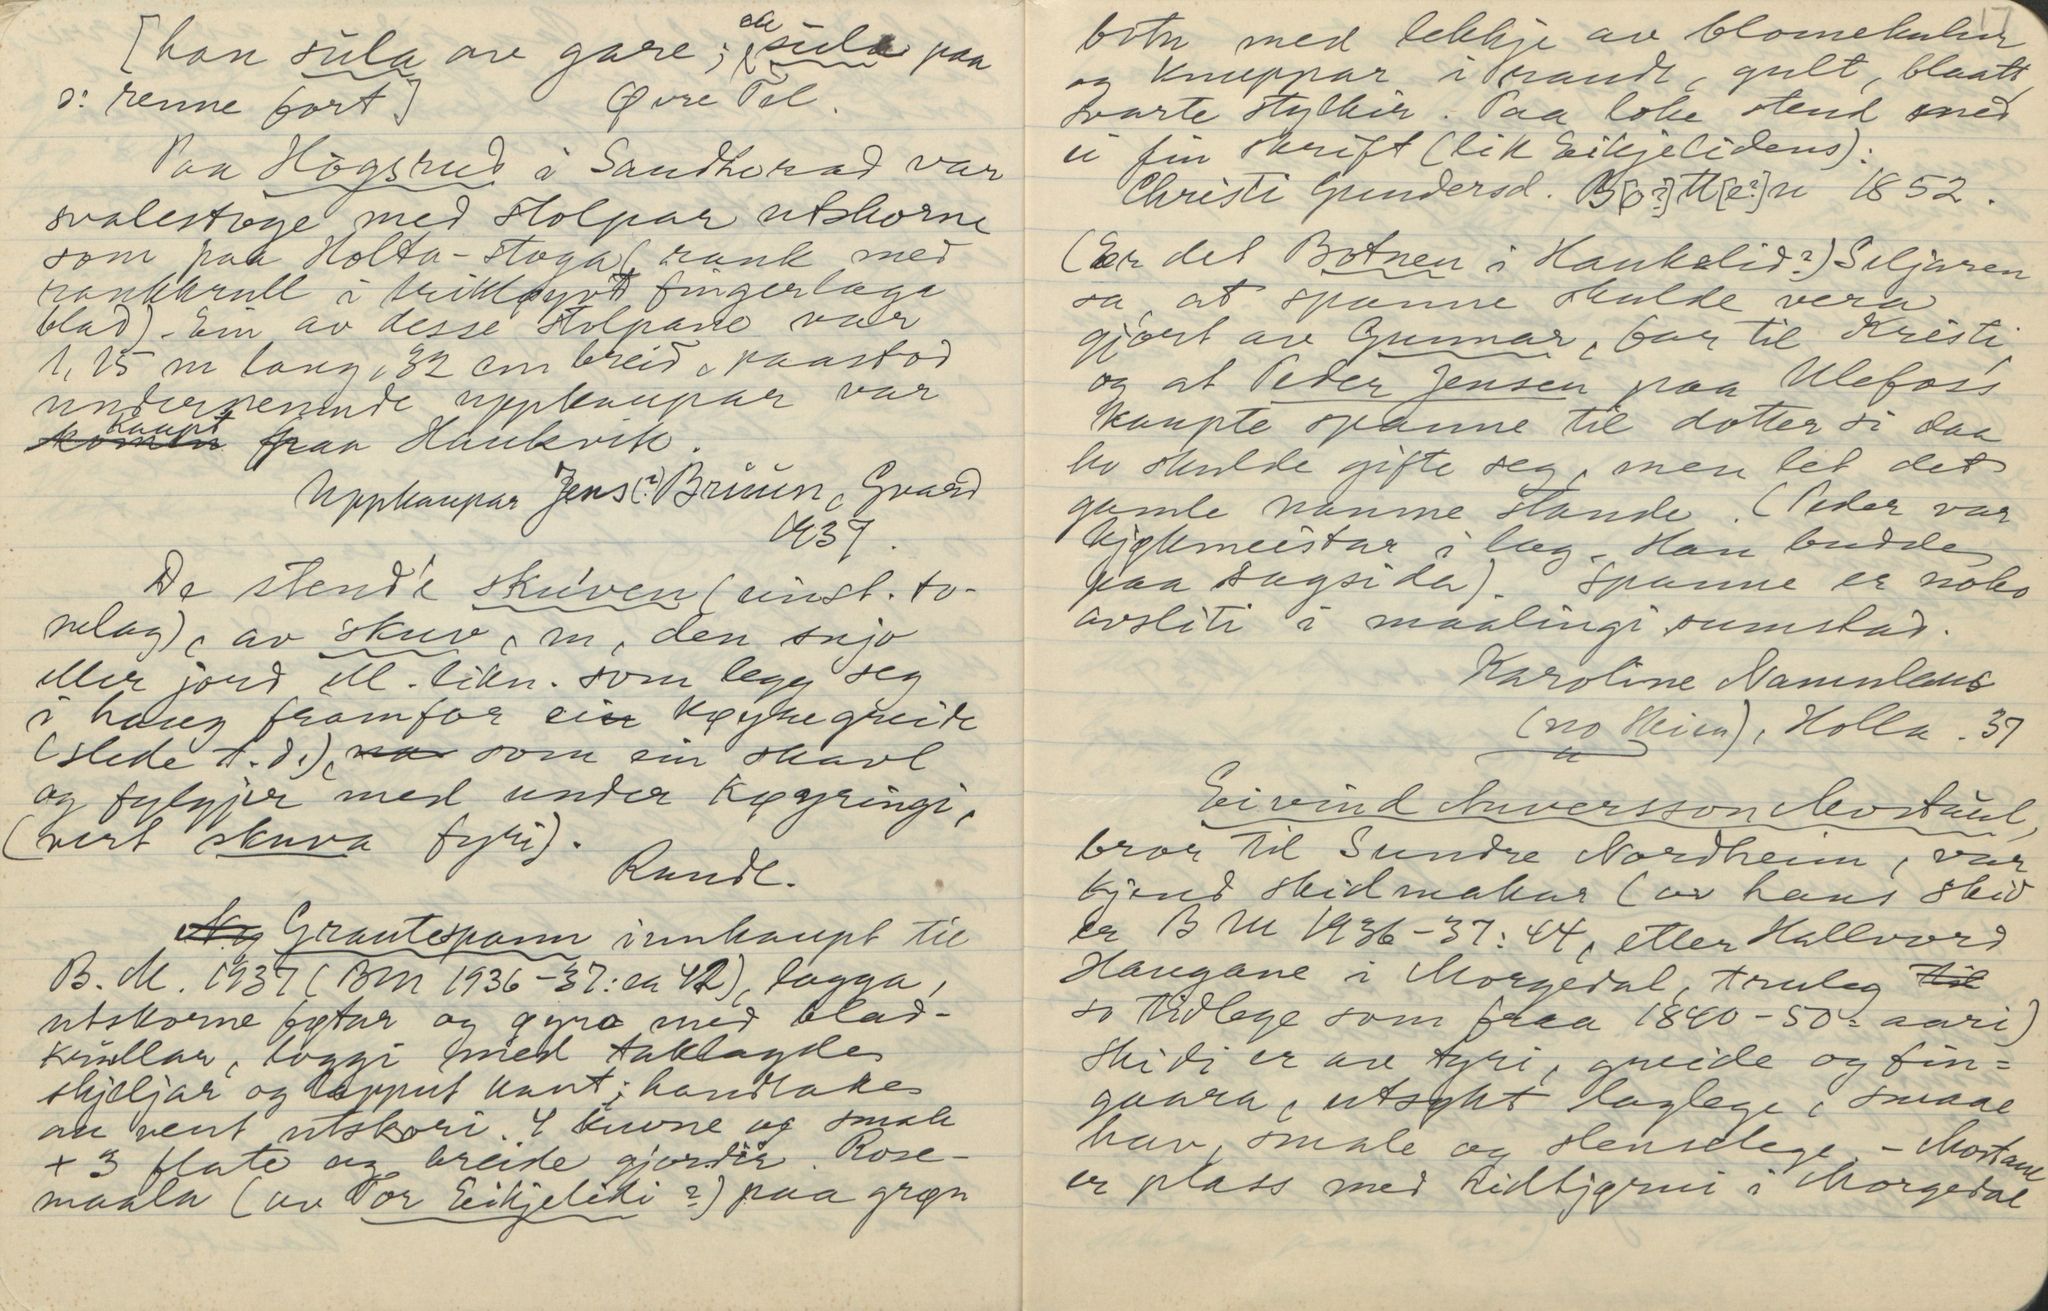 [han sùla ave gare; el. sùla paa
ɔ: renne fort] Øvre Tel.
Paa Høgsrud i Sandherad var
svalestòge med stolpar utskorne
som paa Holta-stoga (rank med
rankkrull i trikløyvt fingerlaga
blad). Ein av desse stolpane var
1,15 m lang, 32 cm breid, paastod
undernemnde uppkaupar var
komin kaupt fraa Haukvik.
Uppkaupar Jens(?) Brüün, Gvarv
1937.
De stend'e skúven (einst. to-
nelag), av skuv, m, den snjo
eller jord ell. likn. som legg seg
i haug framfor ein køyregreide
(slede t.d.), som ein skavl
og fylgjer med under køyringi,
(vert skuva fyri).
Rundt.
Grautespann innkaupt til
B.M. 1937 (BM 1936-37: ca 42), lagga,
utskorne føtar og gyro med blad-
krullar, loggi med taklagde
skjeljar og lapput kant; handtake
au vent utskori. 4 kuvne og smale
+ 3 flate og breide gjordir. Rose-
maala (av Tor Eikjelidi?) paa grøn
17
botn med lekkje av blomekular
og knuppar i raudt, gult, blaatt,
svarte stylkir. Paa loke stend med
ei fin skrift (lik Eikjelidens):
Christi Gundersd. B[o?]tt[e?]n 1852.
(Er det Botnen i Haukelid?) Seljaren
sa, at spanne skulde vera
gjort av Gunnar, far til Kristi,
og at Peder Jensen paa Ulefoss
kaupte spanne til dotter si daa
ho skulde gifte seg, men let det
gamle namne stande. (Peder var
kjøkmeistar i lag. Han budde
paa Dagsida). Spanne er noko
avsliti i maalingi sumstad.
Karoline Namnlaus
(no Skien), Holla. 37
Eivind Auversson Mostaul,
bror til Sundre Nordheim, var
kjend skidmakar (av hans skid
er BM 1936-37: 44, etter Hallvord
Haugane i Morgedal, truleg
so tidlege som fraa 1840-50-aari)
Skidi er av tyri, greide og fin-
gaara, utsykt laglege, smaae
hav, smale og slenselege. - Mostaul
er plass med Lidtjørni i Morgedal